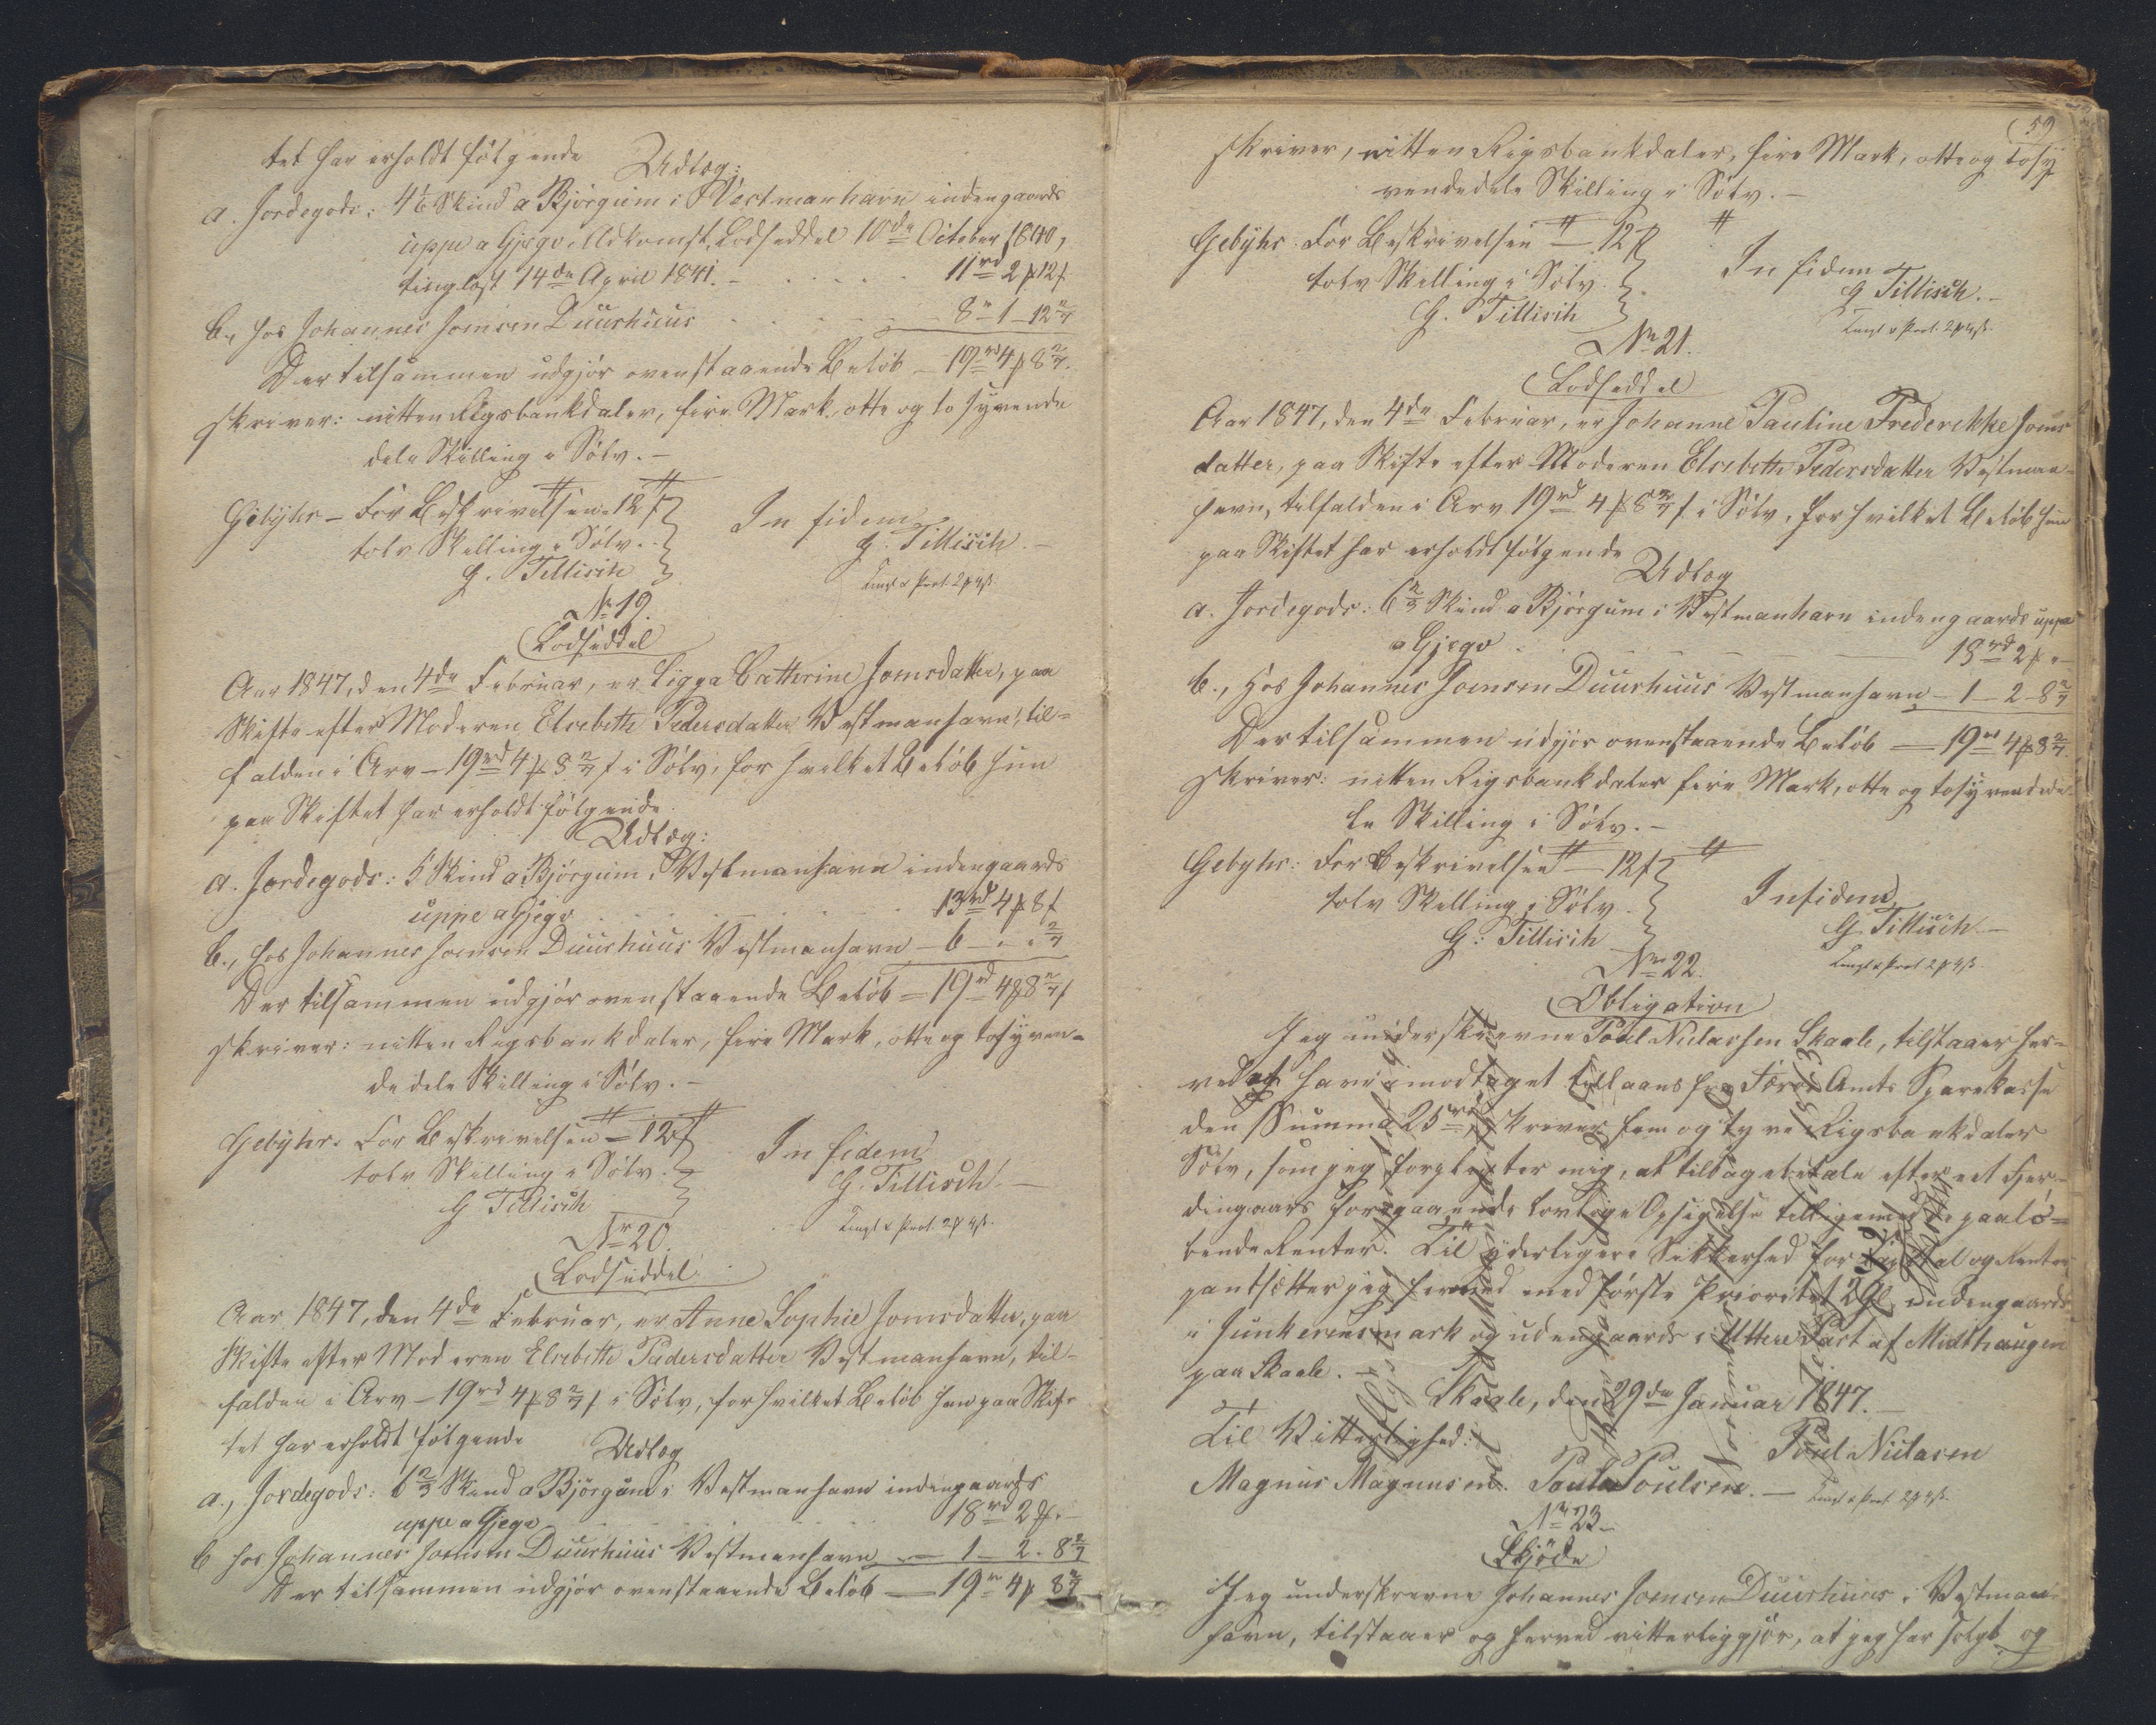 tet har erholdt følgende
Udlæg:
a. Jordegods: 4 1/6 Skind a Bjørgum i Vestmanhavn indengaards
uppe a Gjego, Adkomst, Lodseddel 10de October 1840,
tinglæst 14de April 1841. - . . . . 11rd 2 ℳ 12 ß
b., hos Johannes Joensen Duurhuus . . . . . 8 " 1 - 12 2/7
Der tilsammen udgjør ovenstaaende Beløb - 19rd 4 ℳ 8 2/7.
skriver: nitten Rigsbankdaler, fire Mark, otte og to syvende
dele Skilling i Sølv. -
Gebyhr - For Beskrivelsen - 12 ß
tolv Skilling i Sølv.
G. Tillisch
In fidem
G. Tillisch. -
No 19.
Lodseddel
Aar 1847, den 4de Februar, er Ligga Cathrine Joensdatter, paa
Skifte efter Moderen Elsebeth Pedersdatter Vestmanhavn, til-
falden i Arv - 19rd 4 ℳ 8 2/7 ß i Sølv, for hvilket Beløb hun
paa Skiftet har erholdt følgende
Udlæg:
a. Jordegods: 5 Skind a Bjørgum i Vestmanhavn indengaards
uppe a Gjego . . . . . 13rd 4 ℳ 8 ß
b., hos Johannes Joensen Duurhuus Vestmanhavn - 6 - " " 2/7
Der tilsammen udgjør ovenstaaende Beløb = 19rd 4 ℳ 8 2/7 ß
skriver: nitten Rigsbankdaler, fire Mark, otte og to syven-
de dele Skilling i Sølv. -
Gebyhr. For Beskrivelsen = 12 ß
tolv Skilling i Sølv.
G Tillisch
In fidem
G. Tillisch. -
Nr 20.
Lodseddel
Aar 1847, den 4de Februar, er Anne Sophie Joensdatter, paa
Skifte efter Moderen Elsebeth Pedersdatter Vestmanhavn, til-
falden i Arv - 19rd 4 ℳ 8 2/7 ß i Sølv, for hvilket Beløb hun paa Skif-
tet har erholdt følgende
Udlæg
a., Jordegods: 6 2/3 Skind a Bjørgum i Vestmanhavn indengaards
uppe a Gjego . . . . 18rd 2 ℳ " -
b hos Johannes Joensen Duurhuus Vestmanhavn - 1 - 2 - 8 2/7
Der tilsammen udgjør ovenstaaende Beløb - 19rd 4 ℳ 8 2/7
59
skriver, nitten Rigsbankdaler, fire Mark, otte og to sy
vendedele Skilling i Sølv. -
Gebyhr. For Beskrivelsen - 12 ß
tolv Skilling i Sølv.
G. Tillisch
In fidem
G Tillisch. -
No 21.
Lodseddel
Aar 1847, den 4de Februar, er Johanne Pauline Frederikke Joens
datter, paa Skifte efter Moderen Elsebeth Pedersdatter Vestman-
havn, tilfalden i Arv 19rd 4 ℳ 8 2/7 ß i Sølv, for hvilket Beløb hun
paa Skiftet har erholdt følgende
Udlæg
a. Jordegods: 6 2/3 Skind a Bjørgum i Vestmanhavn indengaards uppe
a Gjego . . . 18rd 2 ℳ " -
b., Hos Johannes Joensen Duurhuus Vestmanhavn - 1 - 2 - 8 2/7
Der tilsammen udgjør ovenstaaende Beløb - 19rd 4 ℳ 8 2/7.
skriver: nitten Rigsbankdaler fire Mark, otte og to syvendede
le Skilling i Sølv. -
Gebyhr: For Beskrivelsen - 12 ß
tolv Skilling i Sølv.
G: Tillisch
In fidem
G. Tillisch -
No 22.
Obligation
Jeg underskrevne Poul Nielassen Skaale, tilstaaer her-
ved at have imodtaget til Laans fra Færø Amts Sparekasse
den Summa 25rd, skriver fem og tyve Rigsbankdaler
Sølv, som jeg forpligter mig, at tilbagebetale efter eet Fjer-
dingaars foregaaende lovlige Opsigelse tilligemed de paalø-
bende Renter. Til yderligere Sikkerhed for Capital og Renter
pantsætter jeg herved med første Prioritet 2 Gl. indengaards
i Junkerens mark og udengaards i Uttere Part af Midthaugen
paa Skaale. -
Skaale, den 29de Januar 1847. -
Til Vitterlighed:
Poul Nielasen
Magnus Magnusen. Poul Poulsen. -
No 23.
Skjøde
Jeg underskrevne Johannes Joensen Duurhuus i Vestman-
havn, tilstaaer og herved vitterliggjør, at jeg har solgt og